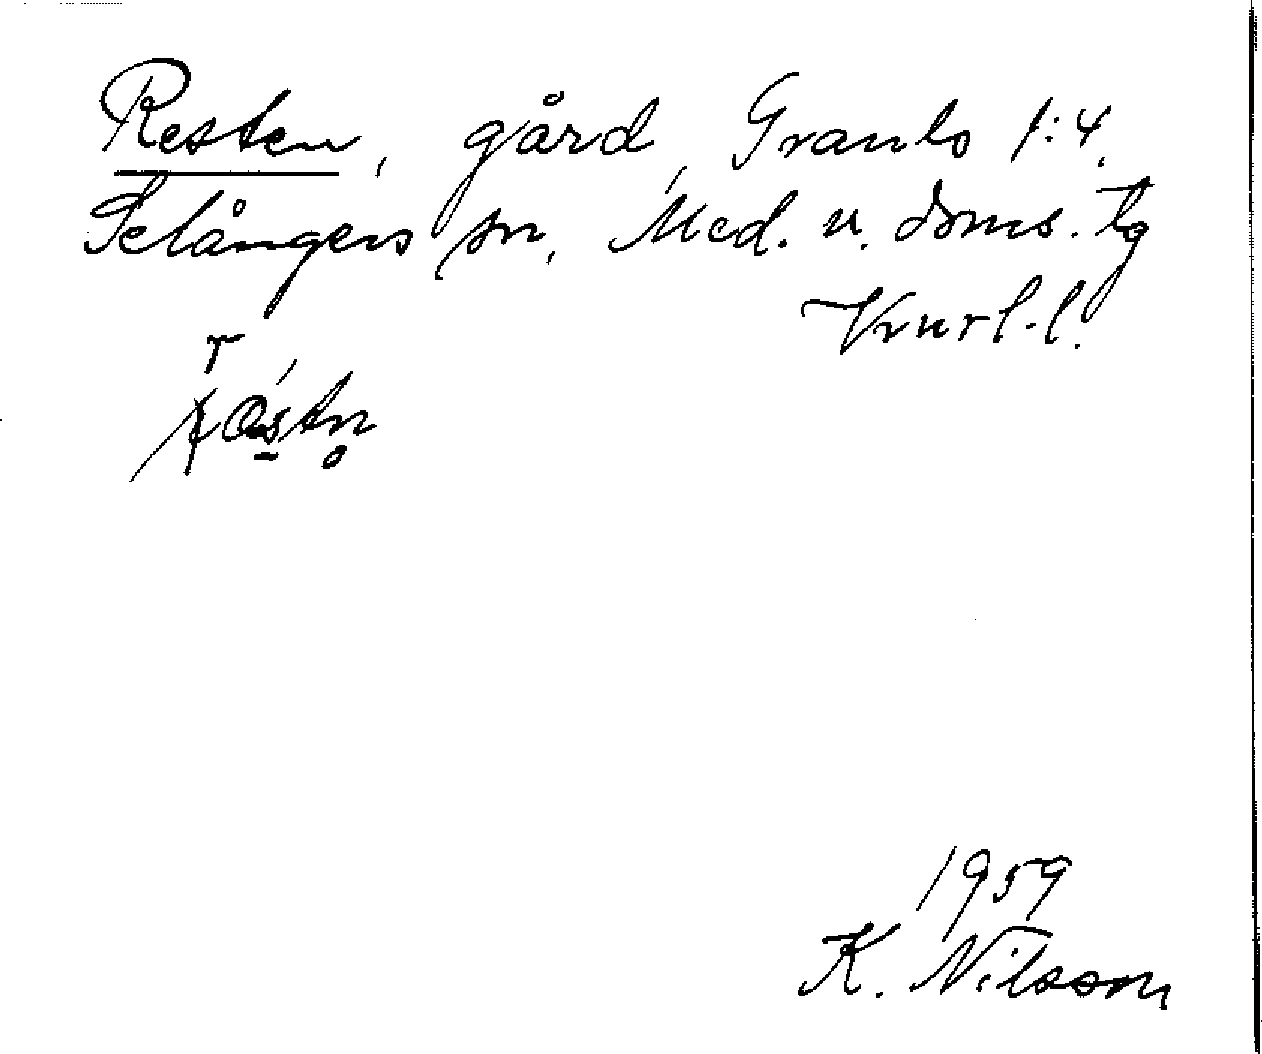 Resten, gård, Granlo 1:4.
Selångers sn, Med. v. doms. tg
Vnrl.l.
r
1959
K. Nilsson